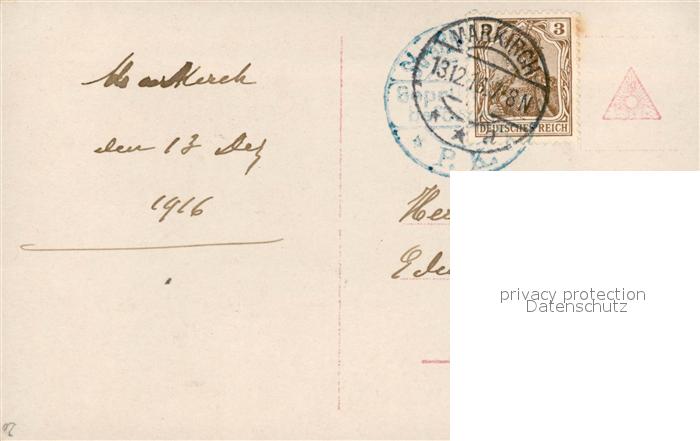 Markirch
den 13 Dez
1916
MARKIRCH
13.12.16.
3
DEUTSCHES REICH
a
P. K.
Her
Edu
privacy protection
Datenschutz